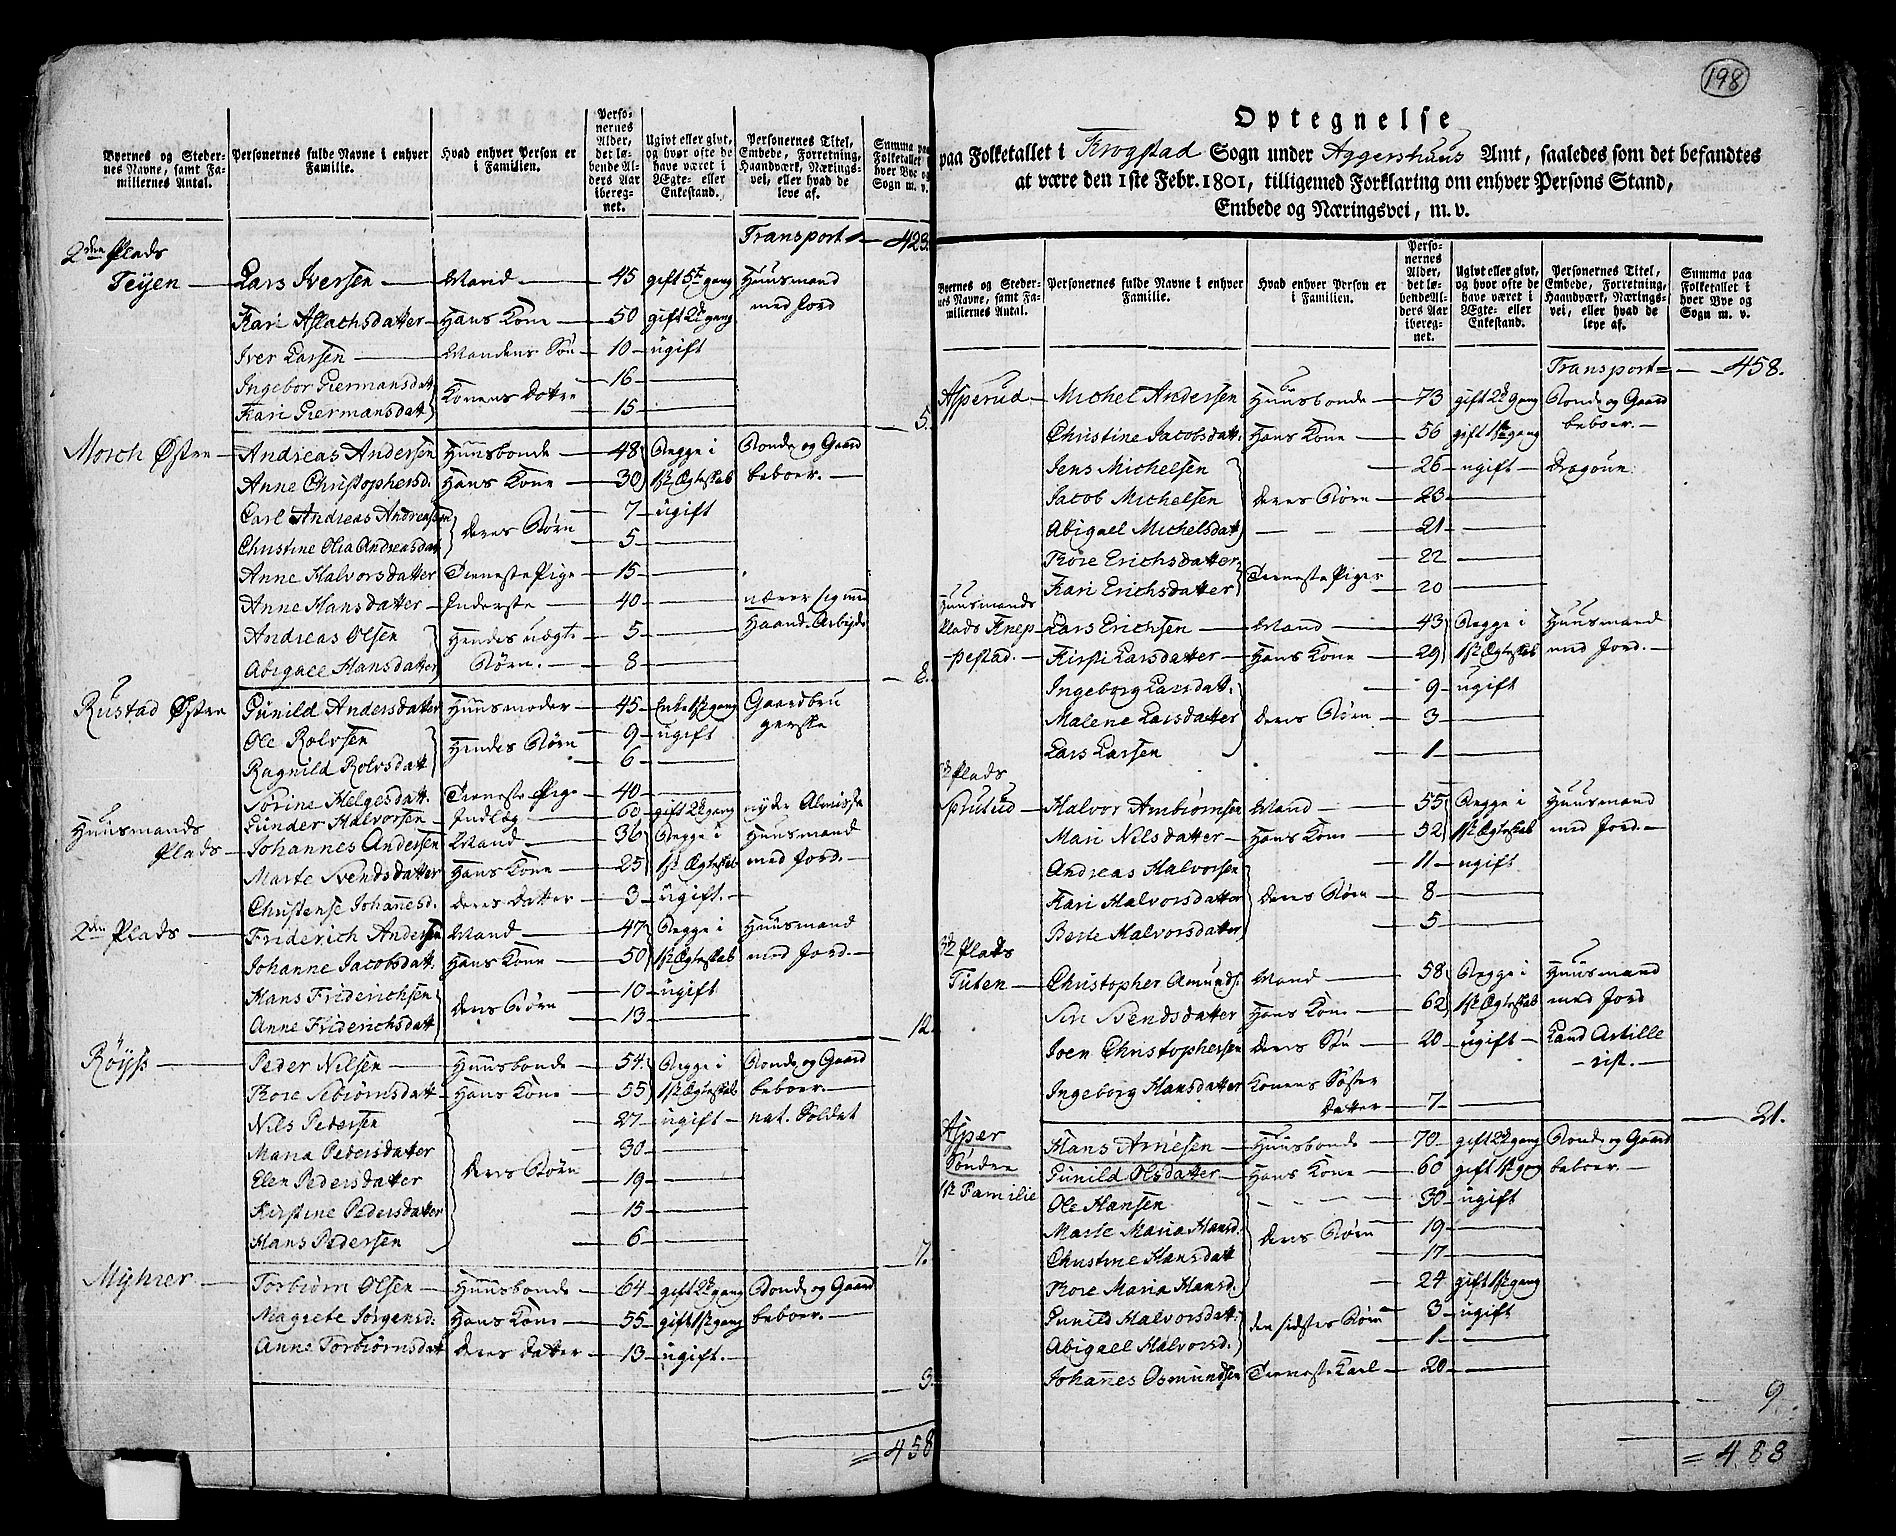 Byernes og Steder-
nes Navne, samt Fa-
miliernes Antal.
Personernes fulde Navne i enhver
Familie.
Hvad enhver Person er
i Familien.
Perso-
nernes
Alder,
det lø-
bende Al-
ders Aar
ibereg-
net.
Ugivt eller givt,
og hvor ofte de
have været i
Ægte- eller
Enkestand.
Personernes Titel,
Embede, Forretning,
Haandværk, Nærings-
vei, eller hvad de
leve af.
Summa paa
Folketallet
hver Bye og
Sogn m. v.
Transport 423.
2den Plads
Teijen Lars Iversen Mand 45 gift 5te gang Huusmand
Kari Aslachsdatter Hans Kone 50 gift 2d gang med Jord
Iver Larsen Mandens Søn 10 ugift
Ingebor Giermansdatt Konens Døtre 16
Kari Giermansdatt 15
5.
Morch Østre Andreas Andersen Huusbonde 48 Begge i Bonde og Gaard
Anne Christophersd. Hans Kone 30 1ste Ægteskab beboer.
Carl Andreas Andreassen deres Børn 7 ugift
Christine Olia Andreasdat 5
Anne Halvorsdatter Tieneste Pige 15
Anne Hansdatter Inderste 40 nærer sig med
Andreas Olsen Hendes uægte 5 Haand-Arbejde
Abigael Hansdatter Børn. 8
8.
Rustad Østre Gunild Andersdatter Huusmoder 45 Enke 1ste gang Gaardbru
Ole Rolvsen Hendes Børn 9 ugift gerske
Ragnild Rolvsdatt 6
Sørine Helgesdatt. Tieneste Pige 40
Gunder Halvorsen Indlog 60 gift 2d gang nyder Almisse
Huusmands
Plads Johannes Andersen Mand 36 Begge i Huusmand
Marte Svendsdatter Hans Kone 25 1ste Ægteskab med Jord.
Christense Johanesd. deres Datter 3 ugift.
2den Plads Friderich Andersen Mand 47 Begge i Huusmand
Johanne Jacobsdatt. Hans Kone 50 1ste Ægteskab med Jord.
Hans Friderichsen deres Børn 10 ugift
Anne Friderichsdatt 13
12.
Røyss Peder Nilsen Huusbonde 54 Begge i Bonde og Gaard
Thore Sebiørnsdatt Hans Kone 55 1ste Ægteskab beboer.
Nils Pedersen 27 ugift nat. Soldat
Maria Pedersdatter 30
Elen Pedersdatter deres Børn 19
Kirstine Pedersdatter 15
Hans Pedersen 6
7.
Myhrer Torbiørn Olsen Huusbonde 64 gift 2d gang Bonde og Gaard
Magrete Jørgensd. Hans Kone 55 gift 1ste gang beboer.
Anne Torbiørnsdatt deres Datter 13 ugift.
3.
= 458
198
Optegnelse
paa Folketallet i Krogstad Sogn under Aggershuus Amt, saaledes som det befandtes
at være den 1ste Febr. 1801, tilligemed Forklaring om enhver Persons Stand,
Embede og Næringsvei, m. v.
Byernes og Steder-
nes Navne, samt Fa-
miliernes Antal.
Personernes fulde Navne i enhver
Familie.
Hvad enhver Person er
i Familien.
Perso-
nernes
Alder,
det lø-
bende Al-
ders Aar
ibereg-
net.
Ugivt eller givt,
og hvor ofte de
have været i
Ægte- eller
Enkestand.
Personernes Titel,
Embede, Forretning,
Haandværk, Nærings-
vei, eller hvad de
leve af.
Summa paa
Folketallet i
hver Bye og
Sogn m. v.
Transport 458.
Asperud Michel Andersen Huusbonde 73 gift 2d gang Bonde og Gaard
Christine Jacobsdatt. Hans Kone 56 gift 1ste gang beboer.
Jens Michelsen 26 ugift Dragoun
Jacob Michelsen deres Børn 23
Abigael Michelsdatt 21
Thore Erichsdatter Tieneste Piger 22
Kari Erichsdatter 20
Huusmands
Plads Knep- Lars Erichsen Mand 43 Begge i Huusmand
pestad. Kirsti Larsdatter Hans Kone 29 1ste Ægteskab med Jord.
Ingeborg Larsdatt. 9 ugift
Malene Larsdatter deres Børn 3
Lars Larsen 1
2d Plads
Sprutud Halvor Ambiørnsen Mand 55 Begge i Huusmand
Mari Nilsdatter Hans Kone 52 1ste Ægteskab med Jord.
Andreas Halvorsen 11 ugift
Kari Halvorsdatter deres Børn 8
Berte Halvorsdatter 5
3d Plads
Tuten Christopher Amunds. Mand 58 Begge i Huusmand
Siri Svendsdatter Hans Kone 62 1ste Ægteskab med Jord
Joen Christophersen deres Søn 20 ugift Land Artille
rist.
Ingeborg Hansdatter Konens Søster
Datter 7
21.
Aspær Hans Arnesen Huusbonde 70 gift 2d gang Bonde og Gaard
Søndre Gunild Olsdatter Hans Kone 60 gift 1ste gag beboer.
1ste Familie Ole Hansen 30 ugift
Marte Maria Hansd. deres Børn 19
Christine Hansdatt 17
Thore Maria Hansd. 24 gift 1ste gang
Gunild Halvorsdatt. den sidstes Børn 3 ugift
Abigael Halvorsd. 1
Johannes Osmundsen Tieneste Karl 20
9.
= 488